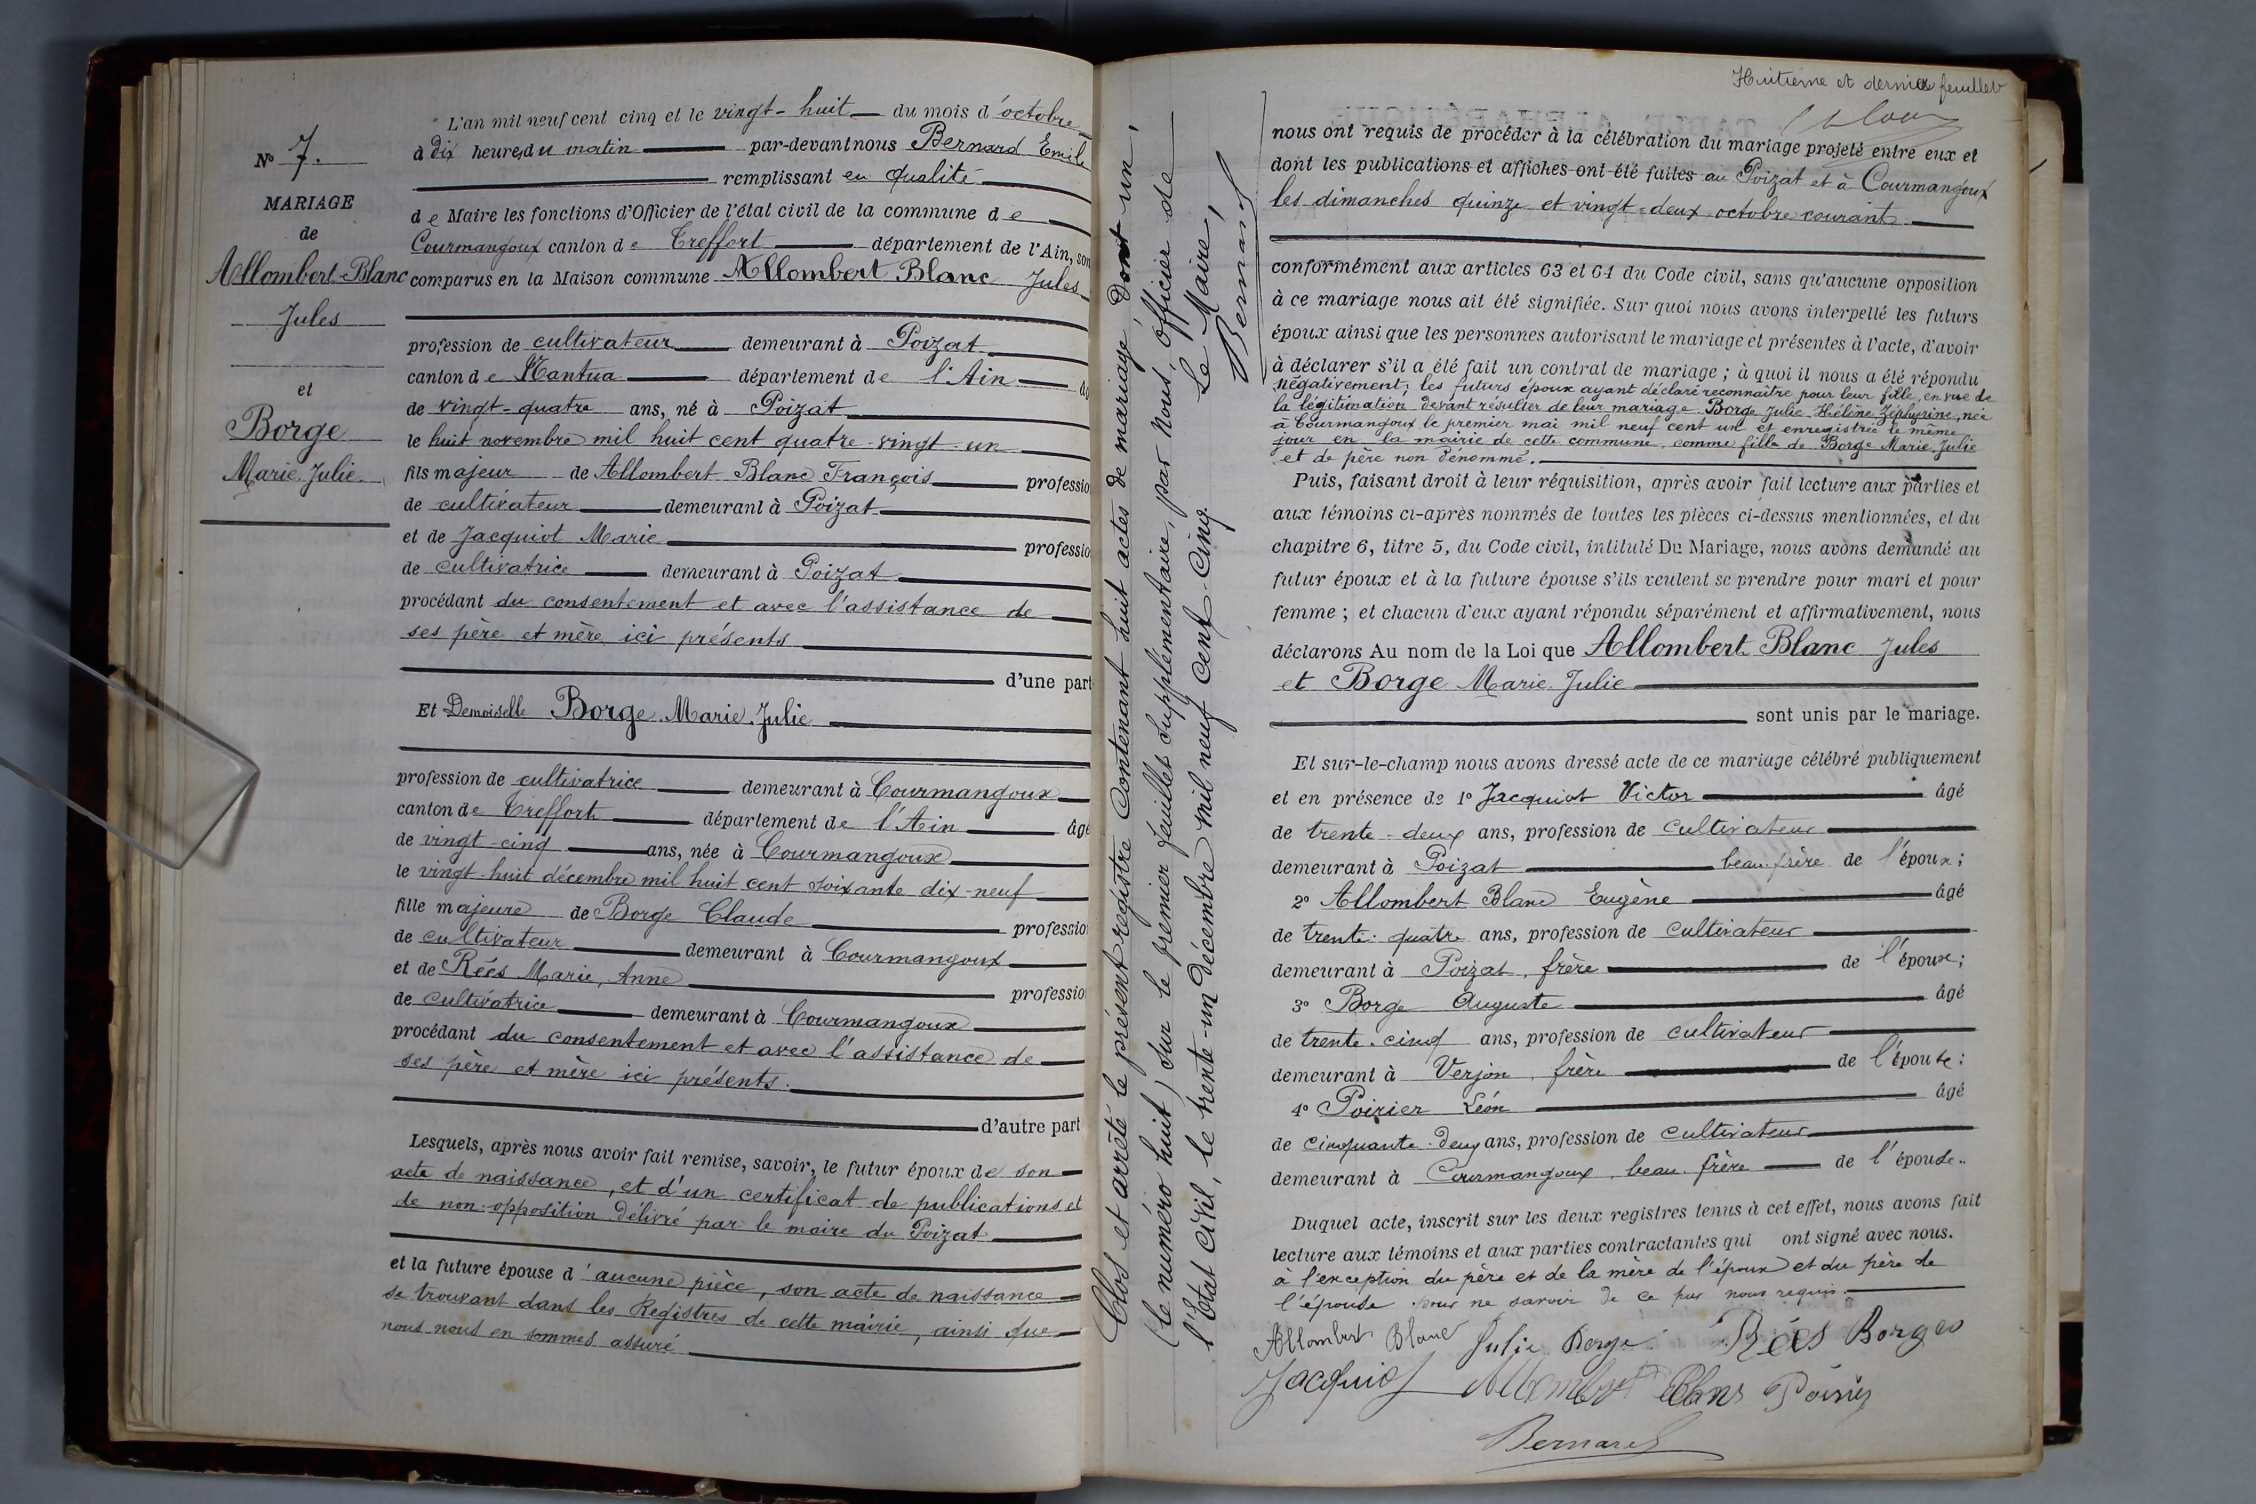 N° 7.
MARIAGE
de
Allombert-Blanc
Jules
et
Borge
Marie Julie
L'an mil neuf cent cinq et le vingt-huit du mois d'octobre
à dix heures du matin par-devant nous Bernard Emile
remplissant en qualité
de Maire les fonctions d'Officier de l'état civil de la commune de
Courmangoux canton de Treffort département de l'Ain, son
comparus en la Maison commune Allombert Blanc Jules
profession de cultivateur demeurant à Poizat
canton de Nantua département de l'Ain âg
de vingt-quatre ans, né à Poizat
le huit novembre mil huit cent quatre-vingt-un
fils majeur de Allombert Blanc François professio
de cultivateur demeurant à Poizat
et de Jacquiot Marie professio
de cultivatrice demeurant à Poizat
procédant du consentement et avec l'assistance de
ses père et mère ici présents
d'une part
Et Demoiselle Borge Marie Julie
profession de cultivatrice demeurant à Courmangoux
canton de Treffort département de l'Ain âgé
de vingt-cinq ans, née à Courmangoux
le vingt-huit décembre mil huit cent soixante dix-neuf
fille majeure de Borge Claude professio
de cultivateur demeurant à Courmangoux
et de Rées Marie Anne professio
de cultivatrice demeurant à Courmangoux
procédant du consentement et avec l'assistance de
ses père et mère ici présents.
d'autre part
Lesquels, après nous avoir fait remise, savoir, le futur époux de son
acte de naissance, et d'un certificat de publications et
de non-opposition délivré par le maire du Poizat
et la future épouse d'aucune pièce, son acte de naissance
se trouvant dans les Registres de cette mairie, ainsi que
nous nous en sommes assuré
Clos et arrêté le présent registre contenant huit actes de mariage dont un,
(le numéro huit) sur le premier feuillet supplémentaire, par nous, officier de
l'état civil, le trente-un décembre mil neuf cent cinq.
Le Maire,
Bernard
Huitième et dernier feuillet
nous ont requis de procéder à la célébration du mariage projeté entre eux et
dont les publications et affiches ont été faites au Poizat et à Courmangoux
les dimanches quinze et vingt-deux octobre courant
conformément aux articles 63 et 64 du Code civil, sans qu'aucune opposition
à ce mariage nous ait été signifiée. Sur quoi nous avons interpellé les futurs
époux ainsi que les personnes autorisant le mariage et présentes à l'acte, d'avoir
à déclarer s'il a été fait un contrat de mariage ; à quoi il nous a été répondu
négativement, les futurs époux ayant déclaré reconnaître pour leur fille, en vue de
la légitimation devant résulter de leur mariage Borge Julie Hélène Zéphyrine, née
à Courmangoux le premier mai mil neuf cent un et enregistrée le même
jour en la mairie de cette commune comme fille de Borge Marie Julie
et de père non dénommé.
Puis, faisant droit à leur réquisition, après avoir fait lecture aux parties et
aux témoins ci-après nommés de toutes les pièces ci-dessus mentionnées, et du
chapitre 6, titre 5, du Code civil, intitulé Du Mariage, nous avons demandé au
futur époux et à la future épouse s'ils veulent se prendre pour mari et pour
femme ; et chacun d'eux ayant répondu séparément et affirmativement, nous
déclarons Au nom de la Loi que Allombert Blanc Jules
et Borge Marie Julie
sont unis par le mariage.
Et sur-le-champ nous avons dressé acte de ce mariage célébré publiquement
et en présence de 1° Jacquiot Victor âgé
de trente-deux ans, profession de cultivateur
demeurant à Poizat beau-frère de l'époux ;
2° Allombert Blanc Eugène âgé
de trente-quatre ans, profession de cultivateur
demeurant à Poizat, frère de l'époux ;
3° Borge Auguste âgé
de trente-cinq ans, profession de cultivateur
demeurant à Verjon, frère de l'épouse ;
4° Poirier Léon âgé
de cinquante-deux ans, profession de cultivateur
demeurant à Courmangoux, beau-frère de l'épouse.
Duquel acte, inscrit sur les deux registres tenus à cet effet, nous avons fait
lecture aux témoins et aux parties contractantes qui ont signé avec nous.
à l'exception du père et de la mère de l'époux et du père de
l'épouse pour ne savoir de ce par nous requis.
Allombert Blanc Julie Borge Rées Borge
Jacquiot Allombert Blanc Poirier
Bernard